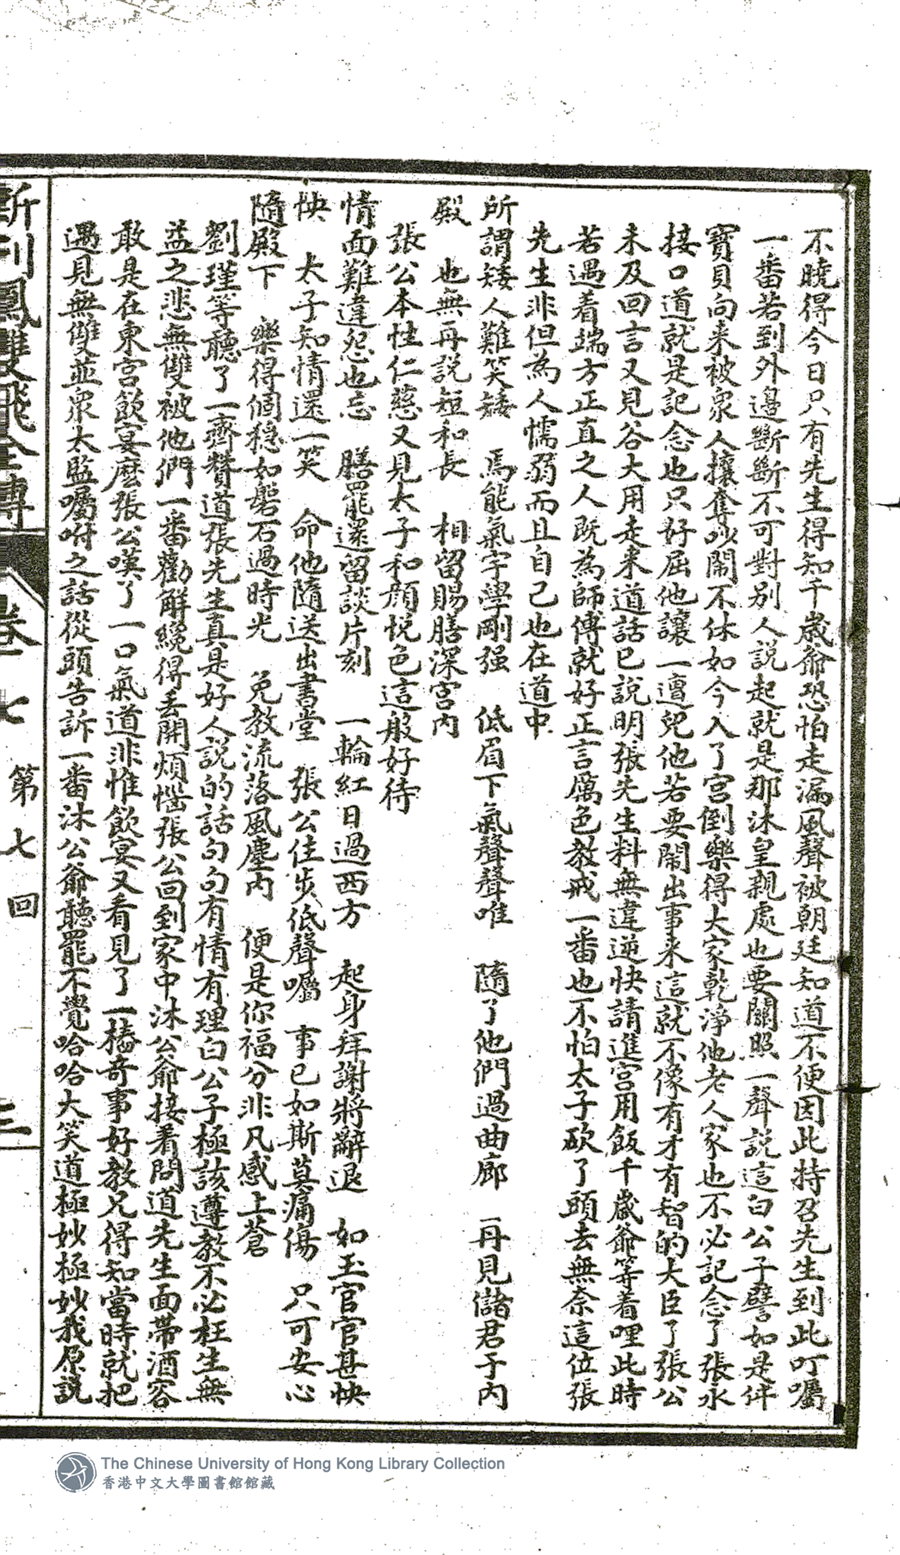 不曉得今日只有先生得知千歲爺恐怕走漏風聲被朝廷知道不便因此持召先生到此叮囑
一番若到外邊斷斷不可對別人說起就是那沐皇親處也要關照一聲說這白公子譬如是件
寶貝向来被衆人攘奪吵鬧不休如今入了宮倒樂得大家乾淨他老人家也不必記念了張永
接口道就是記念也只好屈他讓一遭兒他若要鬧出事来這就不像有才有智的大臣了張公
未及回言又見谷大用走来道話已說明張先生料無違逆快請進宮用飯千歲爺等着哩此時
若遇着端方正直之人既為師傅就好正言厲色教戒一番也不怕太子砍了頭去無奈這位張
先生非但為人懦弱而且自己也在道中
所謂矮人難笑矮　焉能氣字學剛强　低眉下氣聲聲唯　隨了他們過曲廊　一再見儲君子内
殿　也無再說短和長　相留賜膳深宮內
張公本性仁慈又見太子和顔悅色這般好待
情面難違怨也忘　膳罷還留談片刻　一輪紅日過西方　起身拜謝將辭退　如玉官官甚怏
怏　太子知情還一笑　命他隨送出書堂　張公住步低聲囑　事已如斯莫痛傷　只可安心
隨殿下　樂得個穩如磐石過時光　免教流落風塵內　便是你福分非凡感上蒼
劉瑾等聽了一齊贊道張先生真是好人說的話句句有情有理白公子極該遵教不必枉生無
益之悲無雙被他們一番勸解纔得丢開煩惱張公回到家中沐公爺接着問道先生面帶酒容
敢是在東宮飲宴麽張公嘆了一口氣道非惟飲宴又看見了一樁奇事好教兄得知當時就把
遇見無雙並衆太監囑咐之話從頭告訴一番沐公爺聽罷不覺哈哈大笑道極妙極妙我原說
新刊鳳雙飛全傳　卷一　七　第七回
The Chinese University of Hong Kong Library Collection
香港中文大學圖書館館藏